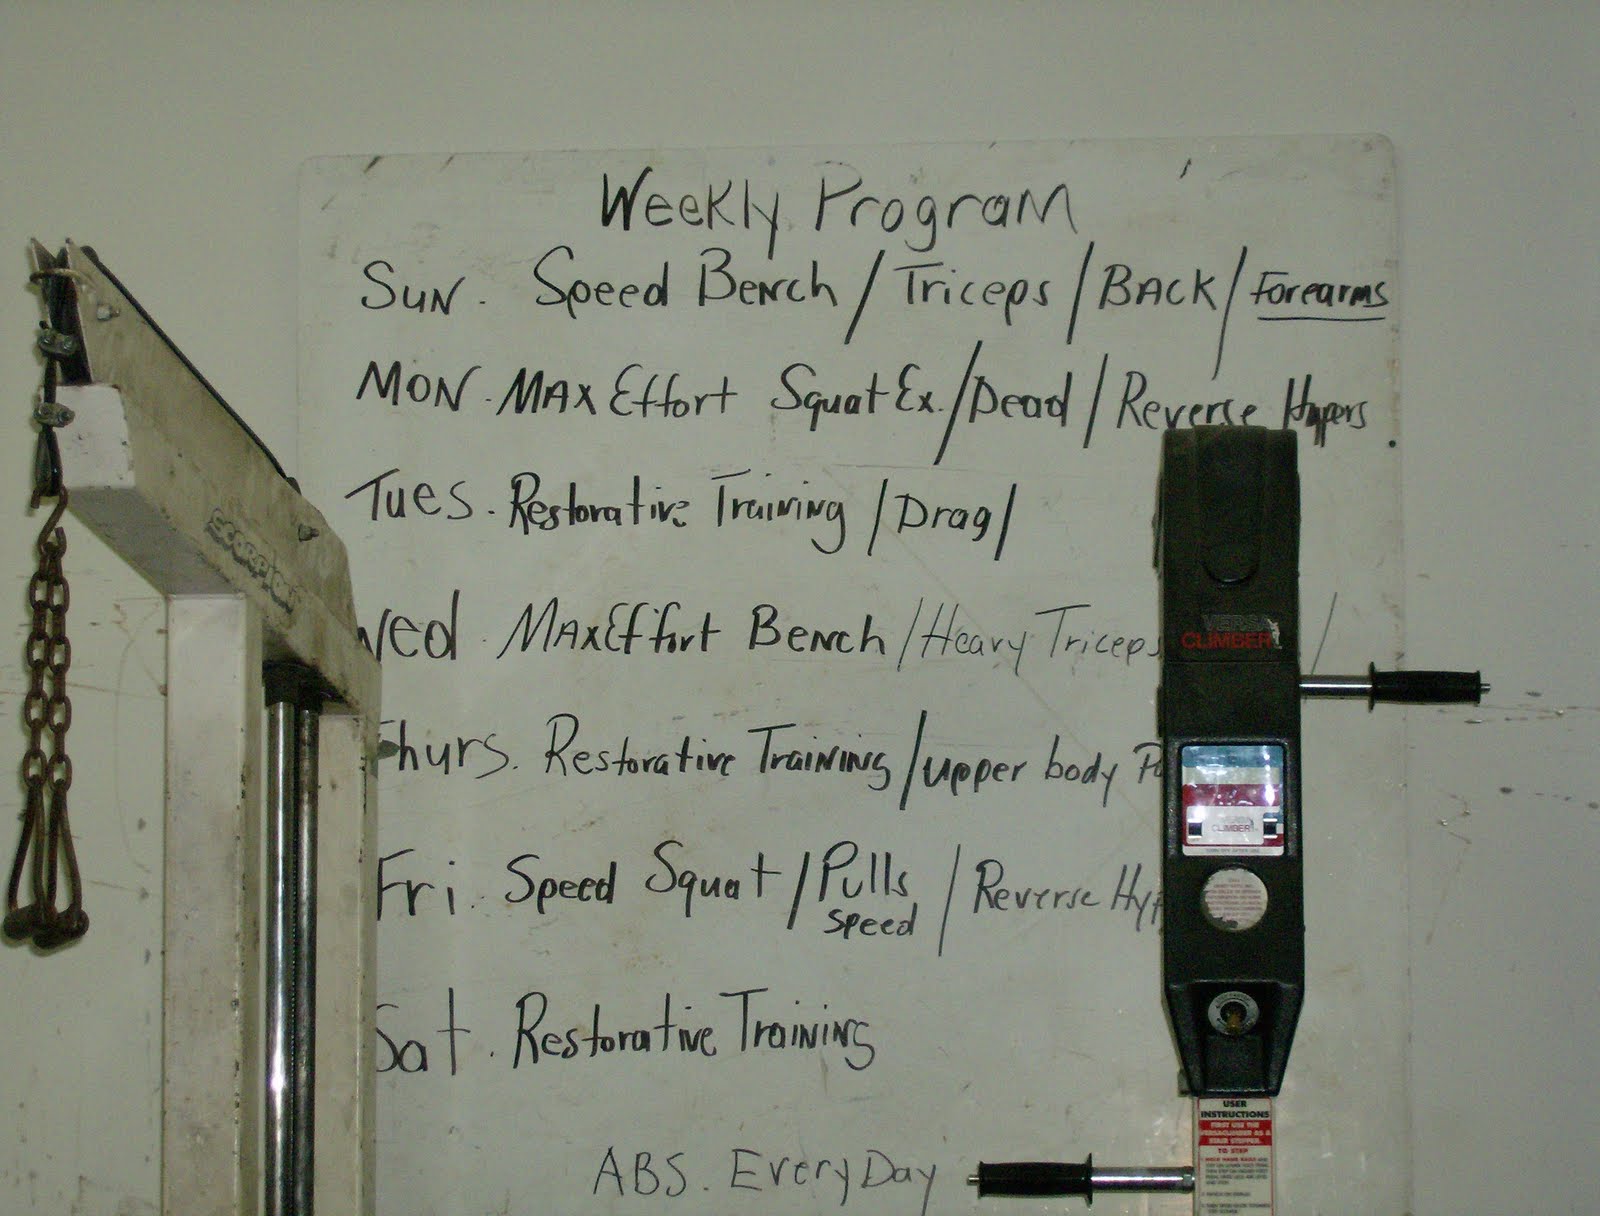 Weekly Program
Sun. Speed Bench / Triceps / BACK / Forearms
MON. MAX Effort Squat Ex. / Dead / Reverse Hypers
Tues. Restorative Training / Drag /
Wed. Max Effort Bench / Heavy Triceps /
Thurs. Restorative Training / upper body
Fri. Speed Squat / Pulls / Reverse
speed
Sat. Restorative Training
ABS. Every Day
SCORPION
VERSA
CLIMBER
CLIMBER
USER
INSTRUCTIONS
FIRST USE THE
VERSACLIMBER AS A
STAIR STEPPER.
TO STEP